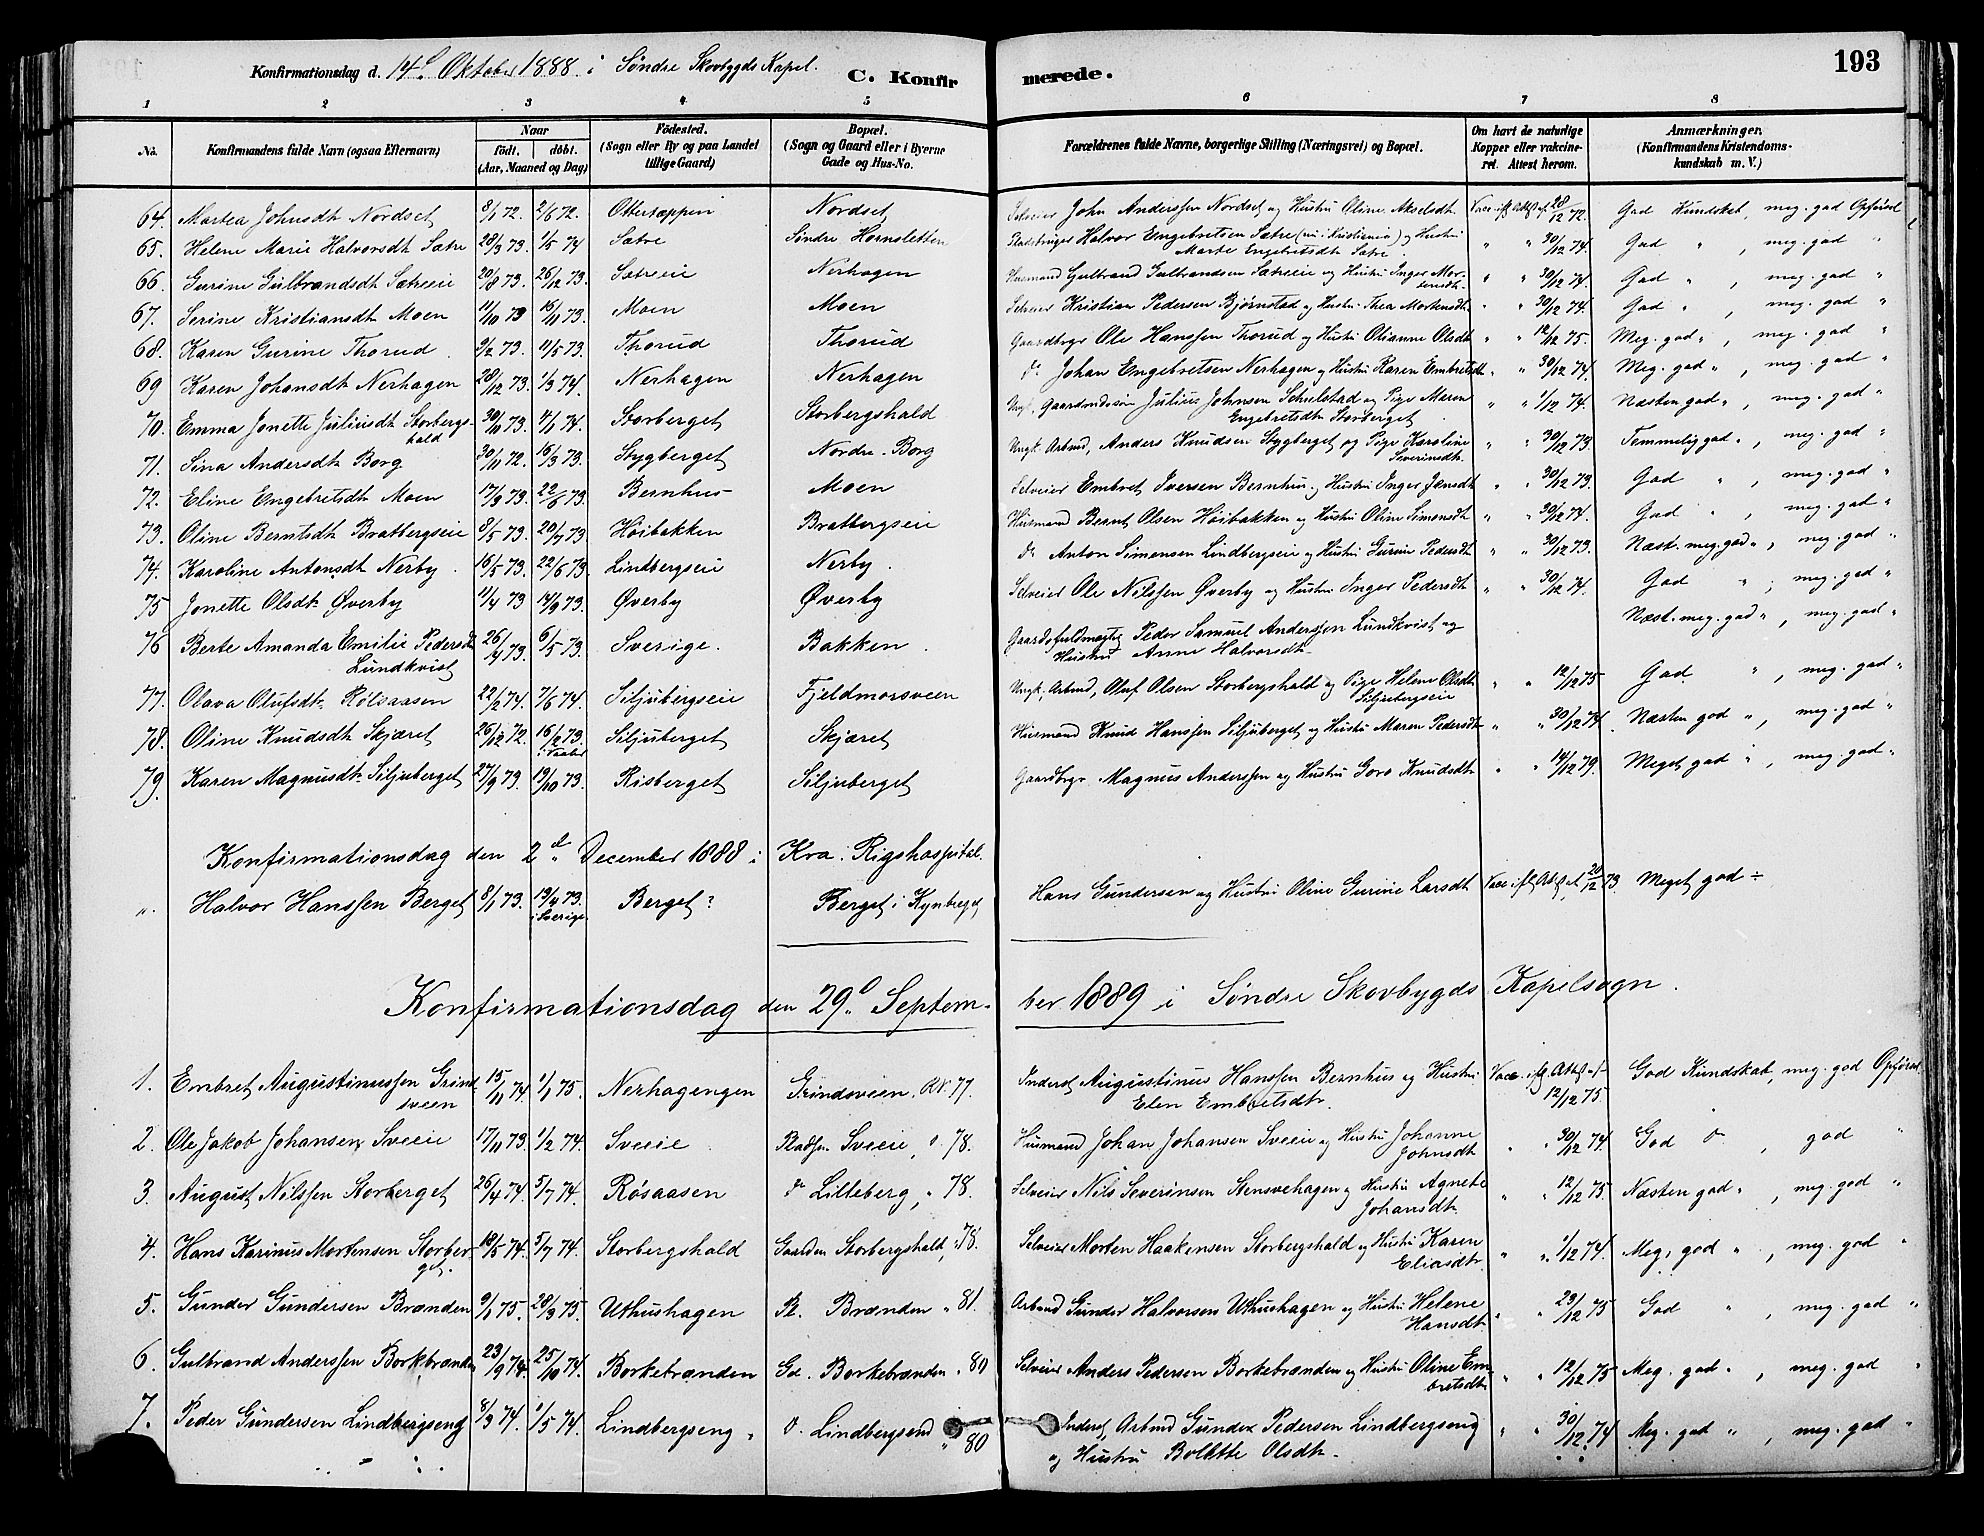 193
Konfirmationsdag d. 14d Oktober 1888 i Søndre Skovbygds Kapel. C. Konfirmerede.
1 2 3 4 5 6 7 8
No. Konfirmandens fulde Navn (ogsaa Efternavn) Naar født. døbt. (Aar, Maaned og Dag) Fødested. (Sogn eller By og paa Landet tillige Gaard) Bopæl. (Sogn og Gaard eller i Byerne Gade og Hus-No. Forældrenes fulde Navne, borgerlige Stilling (Næringsvei) og Bopæl. Om havt de naturlige Kopper eller vaccineret. Attest herom. Anmærkninger. (Konfirmandens Kristendomskundskab m. V.)
64. Martea Johnsdt. Nordset 8/1 72. 2/6 72. Ottertappen Nordset Selveier John Anderssen Nordset og Hustru Oline Akselsdt. Vacc. ifl. Attst. af 28/12 72. God Kundskab, meg. god Opførsel
65. Helene Marie Halvorsdt. Sætre 28/3 73. 1/5 74 Sætre Søndre Hornsletten Halvor Engebretsen Sætre (nu i Kristiania) og Hustru Marte Engebretsdt. Sætre. " " 30/12 74. God " , meg. god "
66. Gurine Gulbrandsdt. Sætreeie 20/8 73. 26/12 73. Sætreeie Nerhagen Husmand Gulbrand Gulbrandsen Sætreeie og Hustru Inger Mortensdt. " " 30/12 74. God " , meg. god "
67. Serine Kristiansdt. Moen 11/10 73 16/11 73. Moen Moen Selveier Kristian Pedersen Bjørnstad og Hustru Thea Mortensdt. " " 30/12 74. God " , meg. god "
68. Karen Gurine Thorud. 9/2 73. 11/5 73. Thorud Thorud Gaardbrgr Ole Hanssen Thorud og Hustru Olianne Olsdt. " " 12/12 75. Meg. god " , meg. god "
69 Karen Johansdt. Nerhagen 28/12 73. 1/3 74. Nerhagen Nerhagen do Johan Engebretsen Nerhagen og Hustru Karen Embretsdt. " " 30/12 74. Meg. god " , meg. god "
70. Emma Jonette Juliusdt. Storbergshald 30/11 73. 4/1 74. Storberget Storbergshald Ungk. Gaardmandssøn Julius Johnsen Schulstad og Pige Maren Engebretsdt. Storberget " " 1/12 74. Næsten god " , meg. god "
71. Sina Andersdt. Borg 30/11 72. 16/3 73. Stygberget Nordre Borg Ungk. Arbmd, Anders Knudsen Stygberget og Pige Karoline Severinsdt. " " 30/12 73. Temmelig god " , meg. god "
72. Eline Engebretsdt. Moen 17/3 73. 22/6 73. Bernhus Moen Selveier Embret Iversen Bernhus og Hustru Inger Jensdt. " " 30/12 73. God " , meg. god "
73. Oline Berntsdt. Bratbergseie 8/5 73. 20/7 73. Høibakken Bratbergseie Husmand Bernt Olsen Høibakken og Hustru Oline Simonsdt. " " 30/12 74. God " , meg. god "
74. Karoline Antonsdt. Nerby. 16/5 73. 22/6 73. Lindbergseie Nerby. do Anton Simensen Lindbergseie og Hustru Gurine Pedersdt. " " 30/12 73. Næst. meg. god " , meg. god "
75 Jonette Olsdt. Øverby 11/4 73 14/9 73. Øverby Øverby Selveier Ole Nilssen Øverby og Hustru Inger Pedersdt. " " 30/12 74. God " , meg. god "
76 Berte Amanda Emilie Pedersdt. Lundkvist 26/4 73. 6/5 73. Sverige. Bakken. Gaardsfuldmægtig Peder Samuel Anderssen Lundkvist og Hustru Anne Halvorsdt. Næst. meg. god " , meg. god "
77. Olava Olufsdt. Røisaasen 22/2 74. 7/6 74. Siljubergseie Fjeldmorsveen Ungk. Arbmd, Oluf Olsen Storbergshald og Pige Helene Olsdt. Siljubergseie " " 12/12 75 God " , meg. god "
78. Oline Knudsdt. Skjæret 26/12 72. 16/2 73. Siljuberget Skjæret Husmand Knud Hanssen Siljuberget og Hustru Maren Pedersdt. " " 30/12 74. Næsten god " , meg. god "
79. Karen Magnusdt. Siljuberget 27/9 73. 19/10 73. Risberget Siljuberget Gaardbrgr Magnus Anderssen og Hustru Goro Knudsdt. " " 14/12 79. Meget god " , meg. god "
Konfirmationsdag den 2d December 1888 i Kra. Rigshospital.
". Halvor Hanssen Berget 8/1 73. 19/4 73. i Sverige Berget? Berget i Kynberget Hans Gundersen og Hustru Oline Gurine Larsdt. Vacc. ifl. Attst. af 20/12 73. Meget god ÷
Konfirmationsdag den 29d September 1889 i Søndre Skovbygds Kapelsogn.
1. Embret Augustinussen Grindsveen 15/11 74 1/1 75. Nerhagengen Grindsveen, RN. 77. Inderst Augustinus Hanssen Bernhus og Hustru Elen Embretsdt. Vacc. ifg. Attst. af 12/12 75 God Kundskab, meg. god Opførsel
2. Ole Jakob Johansen Sveeie 17/11 73. 1/2 74. Sveeie Pladsen Sveeie, " 78. Husmand Johan Johansen Sveeie og Hustru Johanne Johnsdt. " " 30/12 74. God " , god "
3. August Nilssen Storberget 26/4 74. 5/7 74. Røsaasen do Lilleberg, " 78. Selveier Nils Severinsen Stensvehagen og Hustru Agnete Johansdt. " " 12/12 75. Næsten god " , meg. god "
4. Hans Karinus Mortensen Storberget. 18/5 74. 5/7 74. Storbergshald Gaarden Storbergshald, " 78. Selveier Morten Haakensen Storbergshald og Hustru Karen Eliasdt. " " 1/12 74. Meg. god " , meg. god "
5. Gunder Gundersen Brænden 9/1 75. 28/3 75. Uthushagen Pl. Brænden " 81. Arbmd Gunder Halvorsen Uthushagen og Hustru Helene Hansdt. " " 23/12 75 God " , meg. god "
6. Gulbrand Anderssen Borkbrænden 23/9 74. 25/10 74. Borkebrænden Gd. Borkebrænden " 80 Selveier Anders Pedersen Borkebrænden og Hustru Oline Embretsdt. " " 12/12 75 Meg. god " , meg. god "
7. Peder Gundersen Lindbergseng 8/3 74. 1/5 74. Lindbergseng " do Lindbergseng " 80 Inderst, Arbmd Gunder Pedersen Lindbergseng og Hustru Bolette Olsdt. " " 30/12 74 Meg. god " , meg. god "